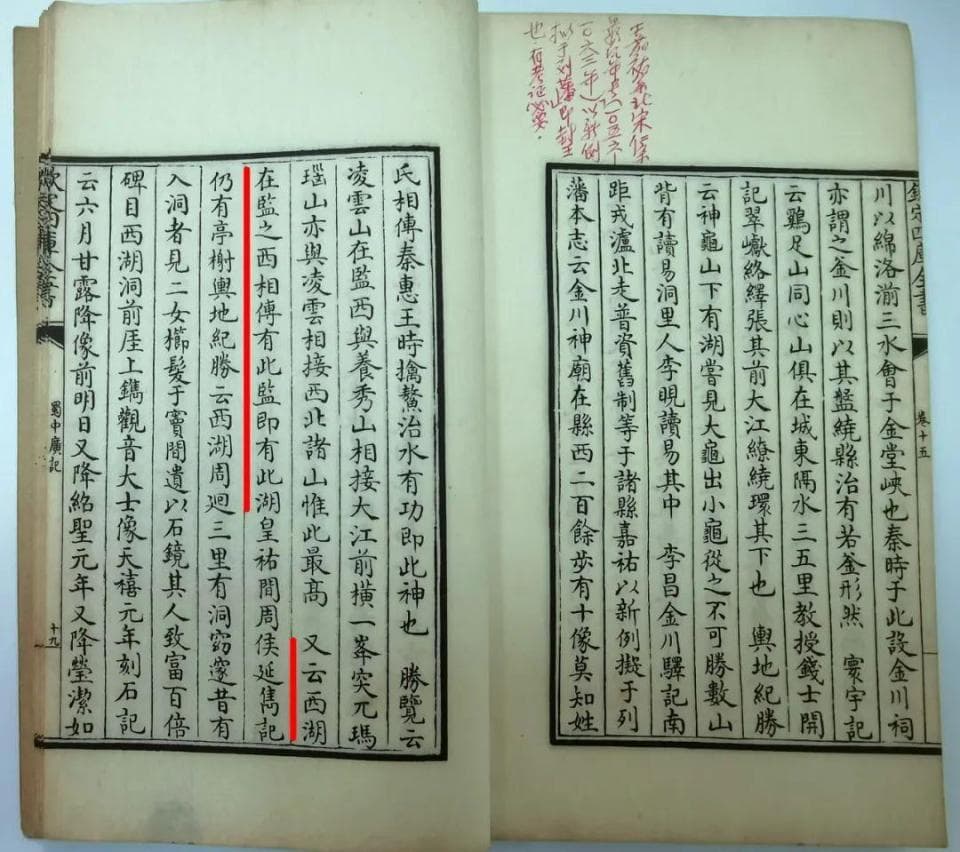 志嘉祐为北宋仁宗
年号(一〇五六—
一〇六三年)以新例
拟于列藩即封
也有考证必要.
欽定四庫全書
卷十五
川以綿洛湔三水會于金堂峽也秦時于此設金川祠
亦謂之釜川則以其盤繞縣治有若釜形然 寰宇記
云鷄足山同心山俱在城東隔水三五里教授錢士開
記翠巘絡繹張其前大江繚繞環其下也 輿地紀勝
云神龜山下有湖嘗見大龜出小龜從之不可勝數山
背有讀易洞里人李晛讀易其中 李昌金川驛記南
距戎瀘北走普資舊制等于諸縣嘉祐以新例擬于列
藩本志云金川神廟在縣西二百餘步有十像莫知姓
氏相傳秦惠王時擒鰲治水有功即此神也 勝覽云
凌雲山在監西與養秀山相接大江前橫一峯突兀瑪
瑙山亦與凌雲相接西北諸山惟此最高 又云西湖
在監之西相傳有此監即有此湖皇祐間周侯延雋記
仍有亭榭輿地紀勝云西湖周廻三里有洞窈邃昔有
入洞者見二女櫛髮于竇間遺以石鏡其人致富百倍
碑目西湖洞前厓上鐫觀音大士像天禧元年刻石記
云六月甘露降像前明日又降紹聖元年又降瑩潔如
欽定四庫全書
蜀中廣記
十九